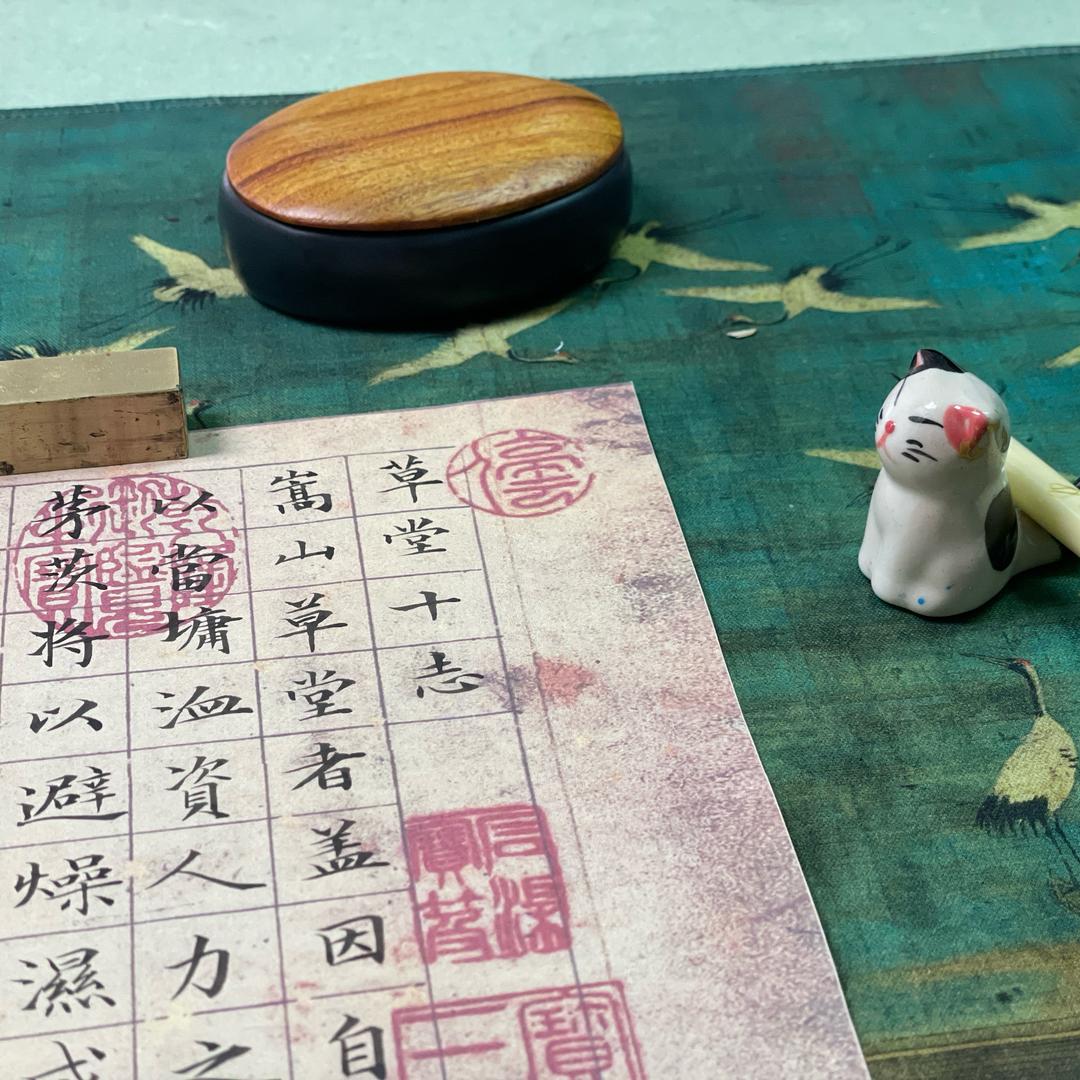 草堂十志
嵩山草堂者盖因自
以當墉洫資人力之
茅茨将以避燥濕